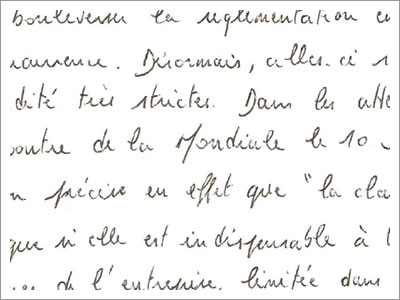 bouleverser la reglementation
Désormais, celles-ci
dité très strictes. Dans les
contre de la Mondiale le 10
précise en effet que "la cla
que si elle est indispensable à l
de l'entreprise, limitée dans